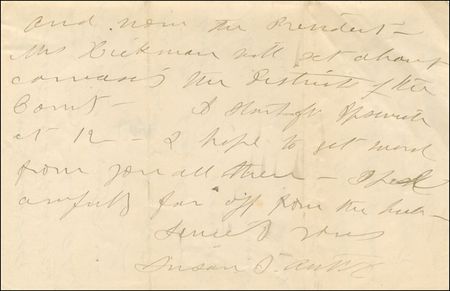 and now the President -
Mrs Hickman will set about
canvass'g the Districts of the
Count -
at 12 - I hope to get word
from you all there - I feel
awfully far off from the hub -
Sincerely yours
Susan B. Anthony